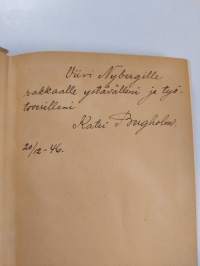 Viivi Nybergille
rakkaalle ystävälleni ja työ-
toverilleni
Katri Bergholm.
20/12 -46.